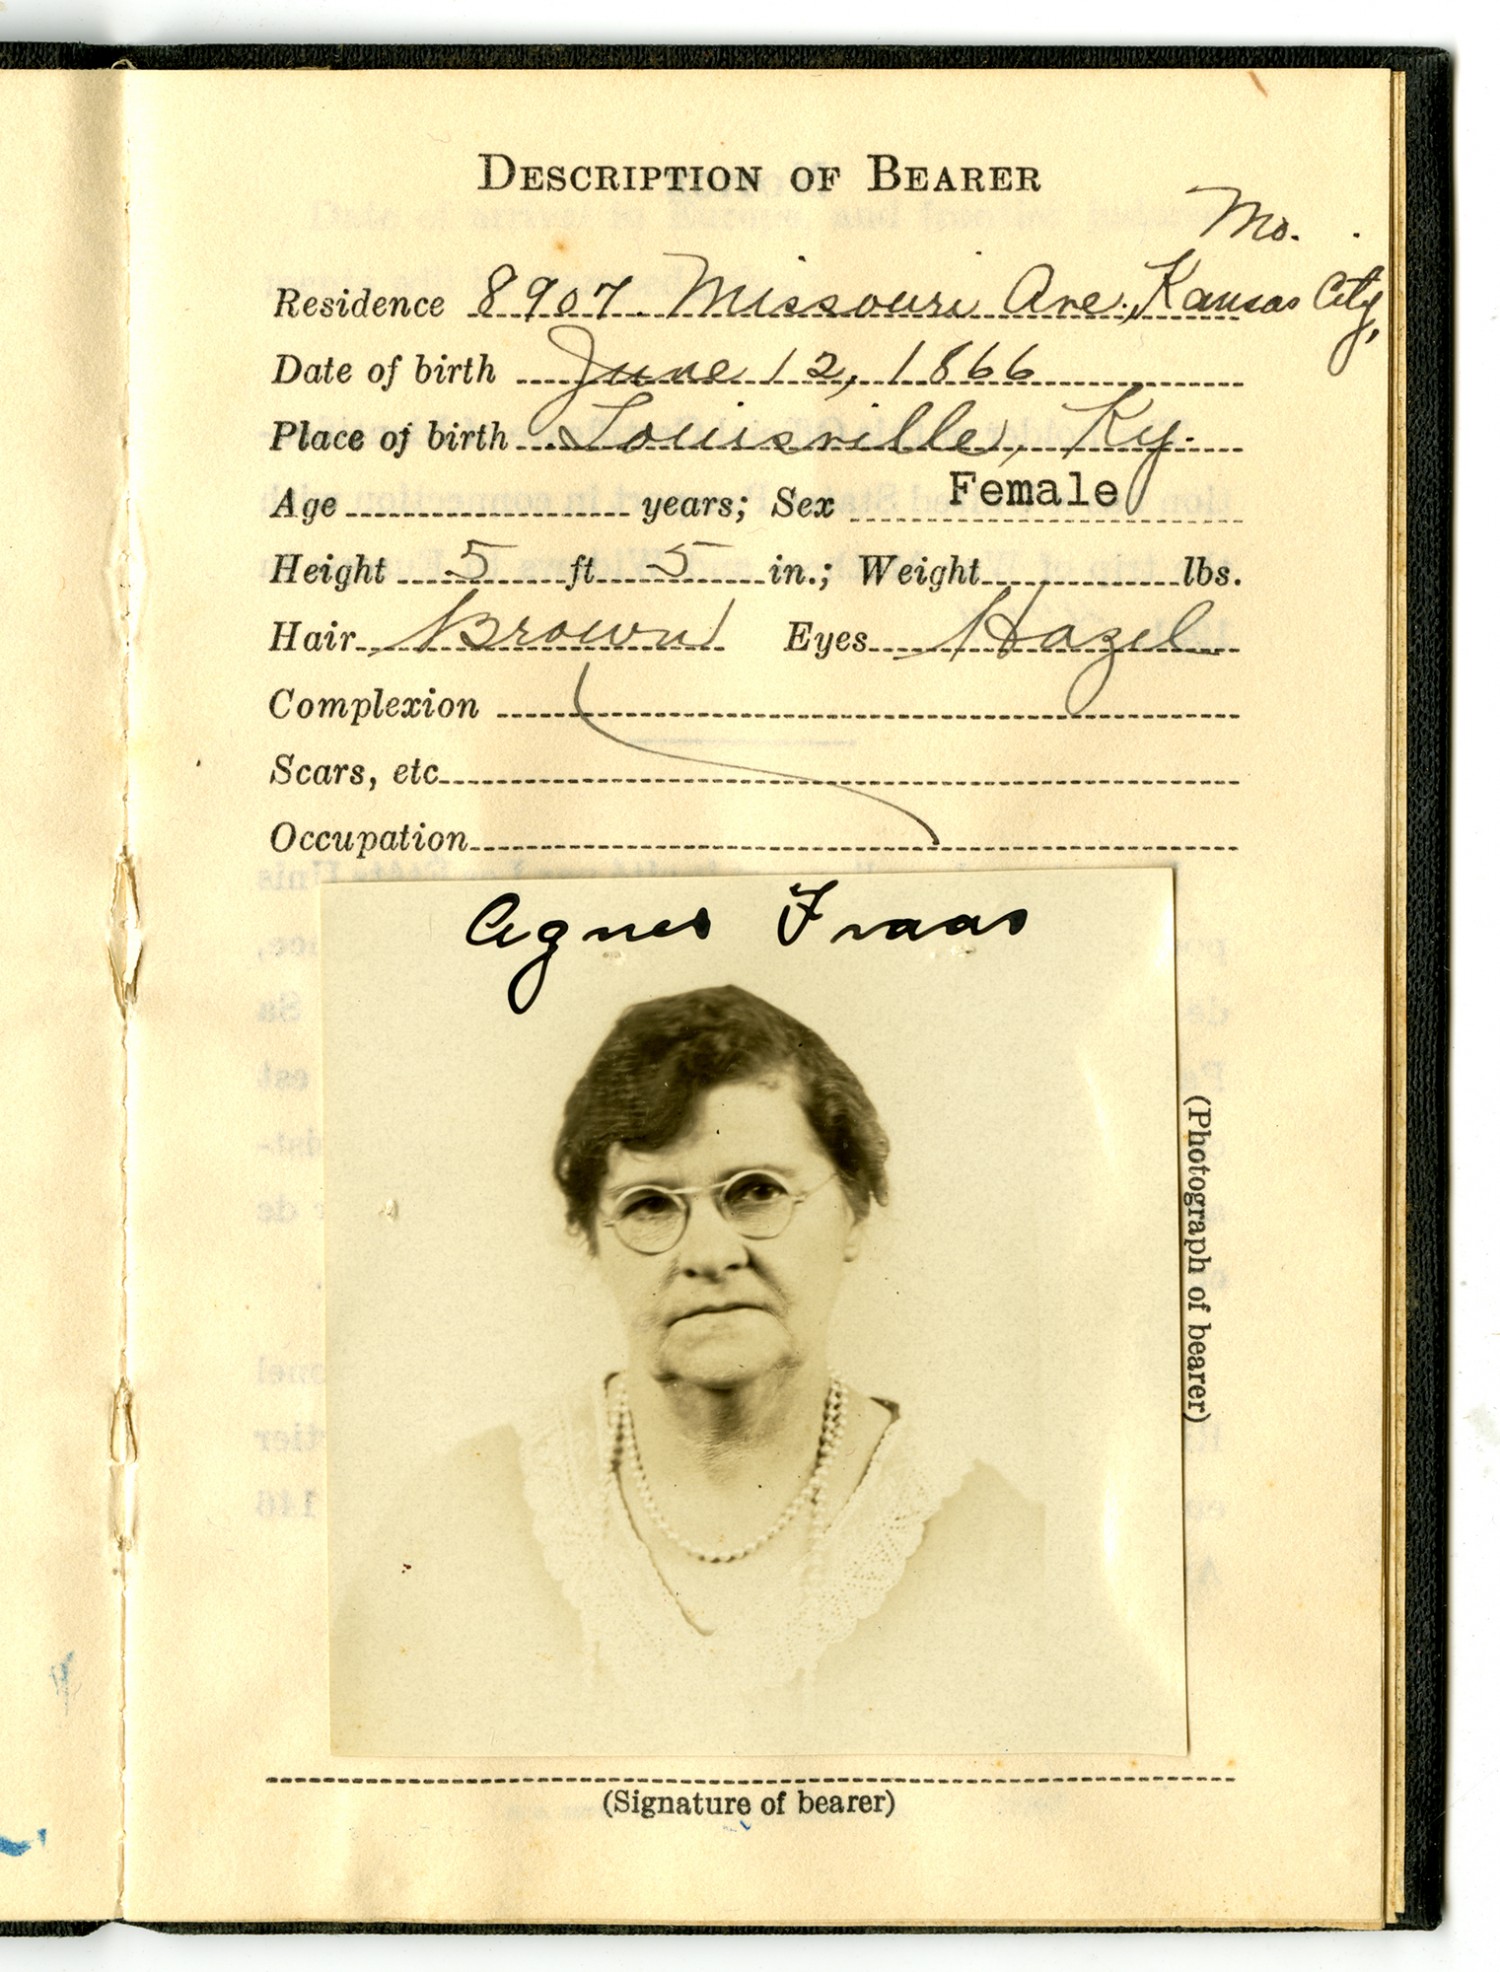 DESCRIPTION OF BEARER
Mo.
Residence 8907 Missouri Ave., Kansas City,
Date of birth June 12, 1866
Place of birth Louisville, Ky.
Age years; Sex Female
Height 5 ft 5 in.; Weight lbs.
Hair Brown Eyes Hazel
Complexion
Scars, etc
Occupation
Agnes Fraas
(Photograph of bearer)
(Signature of bearer)